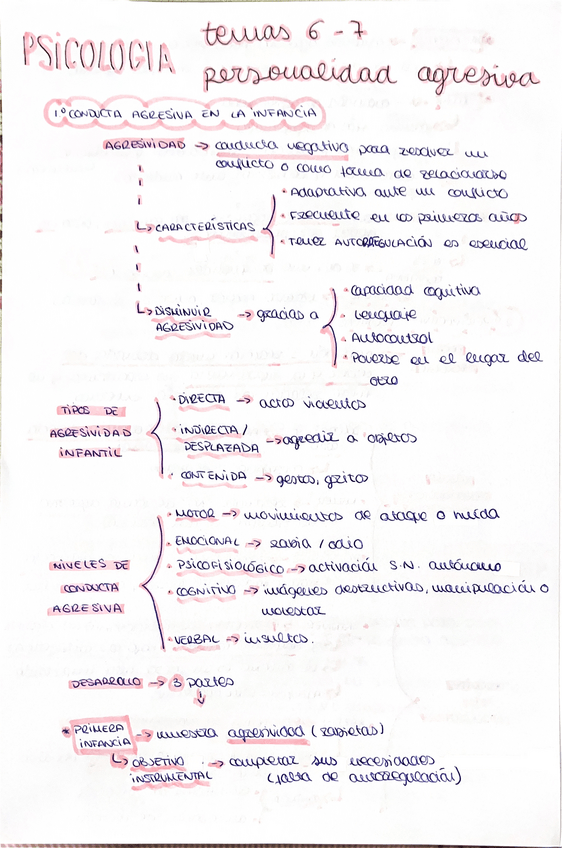 PSICOLOGIA
temas 6-7
personalidad agresiva
1º CONDUCTA AGRESIVA EN LA INFANCIA
AGRESIVIDAD -> conducta negativa para resolver un
conflicto o como forma de relacionarse
↳ CARACTERÍSTICAS
· Adaptativa ante un conflicto
· Frecuente en los primeros años
· Tener AUTORREGULACIÓN es esencial
↳ DISMINUIR
AGRESIVIDAD -> gracias a
· Capacidad cognitiva
· Lenguaje
· Autocontrol
· Ponerse en el lugar del
otro
TIPOS DE
AGRESIVIDAD
INFANTIL
· DIRECTA -> actos violentos
· INDIRECTA /
DESPLAZADA -> agredir a objetos
· CONTENIDA -> gestos, gritos
NIVELES DE
CONDUCTA
AGRESIVA
· MOTOR -> movimientos de ataque o huída
· EMOCIONAL -> rabia / odio
· PSICOFISIOLÓGICO -> activación S.N. autónomo
· COGNITIVO -> imágenes destructivas, manipulación o
malestar
· VERBAL -> insultos.
DESARROLLO -> 3 partes
* PRIMERA
INFANCIA -> muestra agresividad (rabietas)
↳ OBJETIVO
INSTRUMENTAL -> completar sus necesidades
(falta de autorregulación)